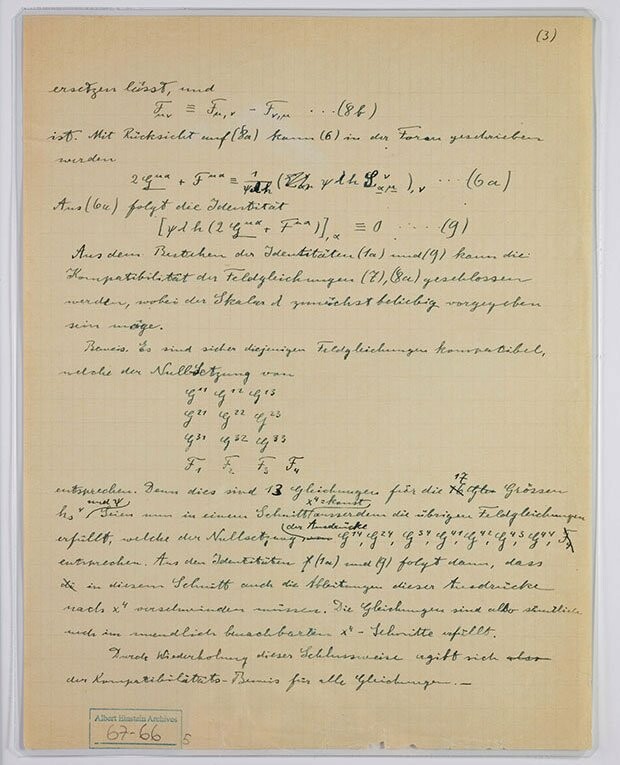 (3)
ersetzen lässt, und
F_μν ≡ F_μ,ν - F_ν,μ ... (8b)
ist. Mit Rücksicht auf (8a) kann (6) in der Form geschrieben
werden
2 G^μα + F^μα ≡ 1/ψh ( ψ h ),ν ... (6a)
Aus (6a) folgt die Identität
[ψ h (2 G^μα + F^μα)],α ≡ 0 ... (9)
Aus dem Bestehen der Identitäten (1a) und (9) kann die
Kompatibilität der Feldgleichungen (7), (8a) geschlossen
werden, wobei der Skalar zunächst beliebig vorgegeben
sein möge.
Beweis. Es sind sicher diejenigen Feldgleichungen kompatibel,
welche der Nullsetzung von
G^11 G^12 G^13
G^21 G^22 G^23
G^31 G^32 G^33
F_1 F_2 F_3 F_4
entsprechen. Denn dies sind 13 Gleichungen für die 17 Grössen
h_s^ν und ψ. Seien nun in einem Schnitt x^4 = konst ausserdem die übrigen Feldgleichungen
erfüllt, welche der Nullsetzung der Ausdrücke G^14, G^24, G^34, G^41, G^42, G^43, G^44,
entsprechen. Aus den Identitäten (1a) und (9) folgt dann, dass
in diesem Schnitt auch die Ableitungen dieser Ausdrücke
nach x^4 verschwinden müssen. Die Gleichungen sind also sämtlich
auch im unendlich benachbarten x^4 - Schnitte erfüllt.
Durch Wiederholung dieser Schlussweise ergibt sich
der Kompatibilitäts-Beweis für alle Gleichungen. —
Albert Einstein Archives
67-66
5